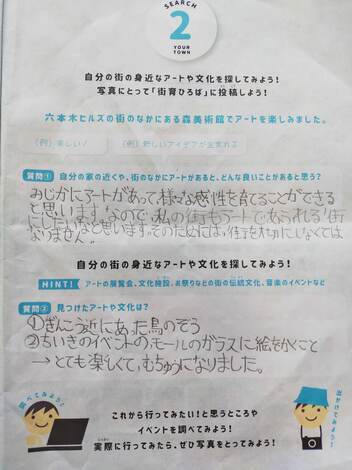 SEARCH
2
YOUR
TOWN
自分の街の身近なアートや文化を探してみよう!
写真にとって「街育ひろば」に投稿しよう!
六本木ヒルズの街のなかにある森美術館でアートを楽しみました。
(例) 楽しい!
(例) 新しいアイデアが生まれる
質問① 自分の家の近くや、街のなかにアートがあると、どんな良いことがあると思う?
みじかにアートがあって様々な感性を育てることができる
と思います。なので、私の街もアートであふれる街
にしたいなと思います。そのためには、街を大切にしなくては
なりません。
自分の街の身近なアートや文化を探してみよう!
HINT! アートの展覧会、文化施設、お祭りなどの街の伝統文化、音楽のイベントなど
質問② 見つけたアートや文化は?
①ぎんこう近にあった鳥のぞう
②ちいきのイベントで、モールのガラスに絵をかくこと
→とても楽しくて、むちゅうになりました。
調べてみよう!
出かけてみよう!
これから行ってみたい!と思うところや
イベントを調べてみよう!
実際に行ってみたら、ぜひ写真をとってみよう!